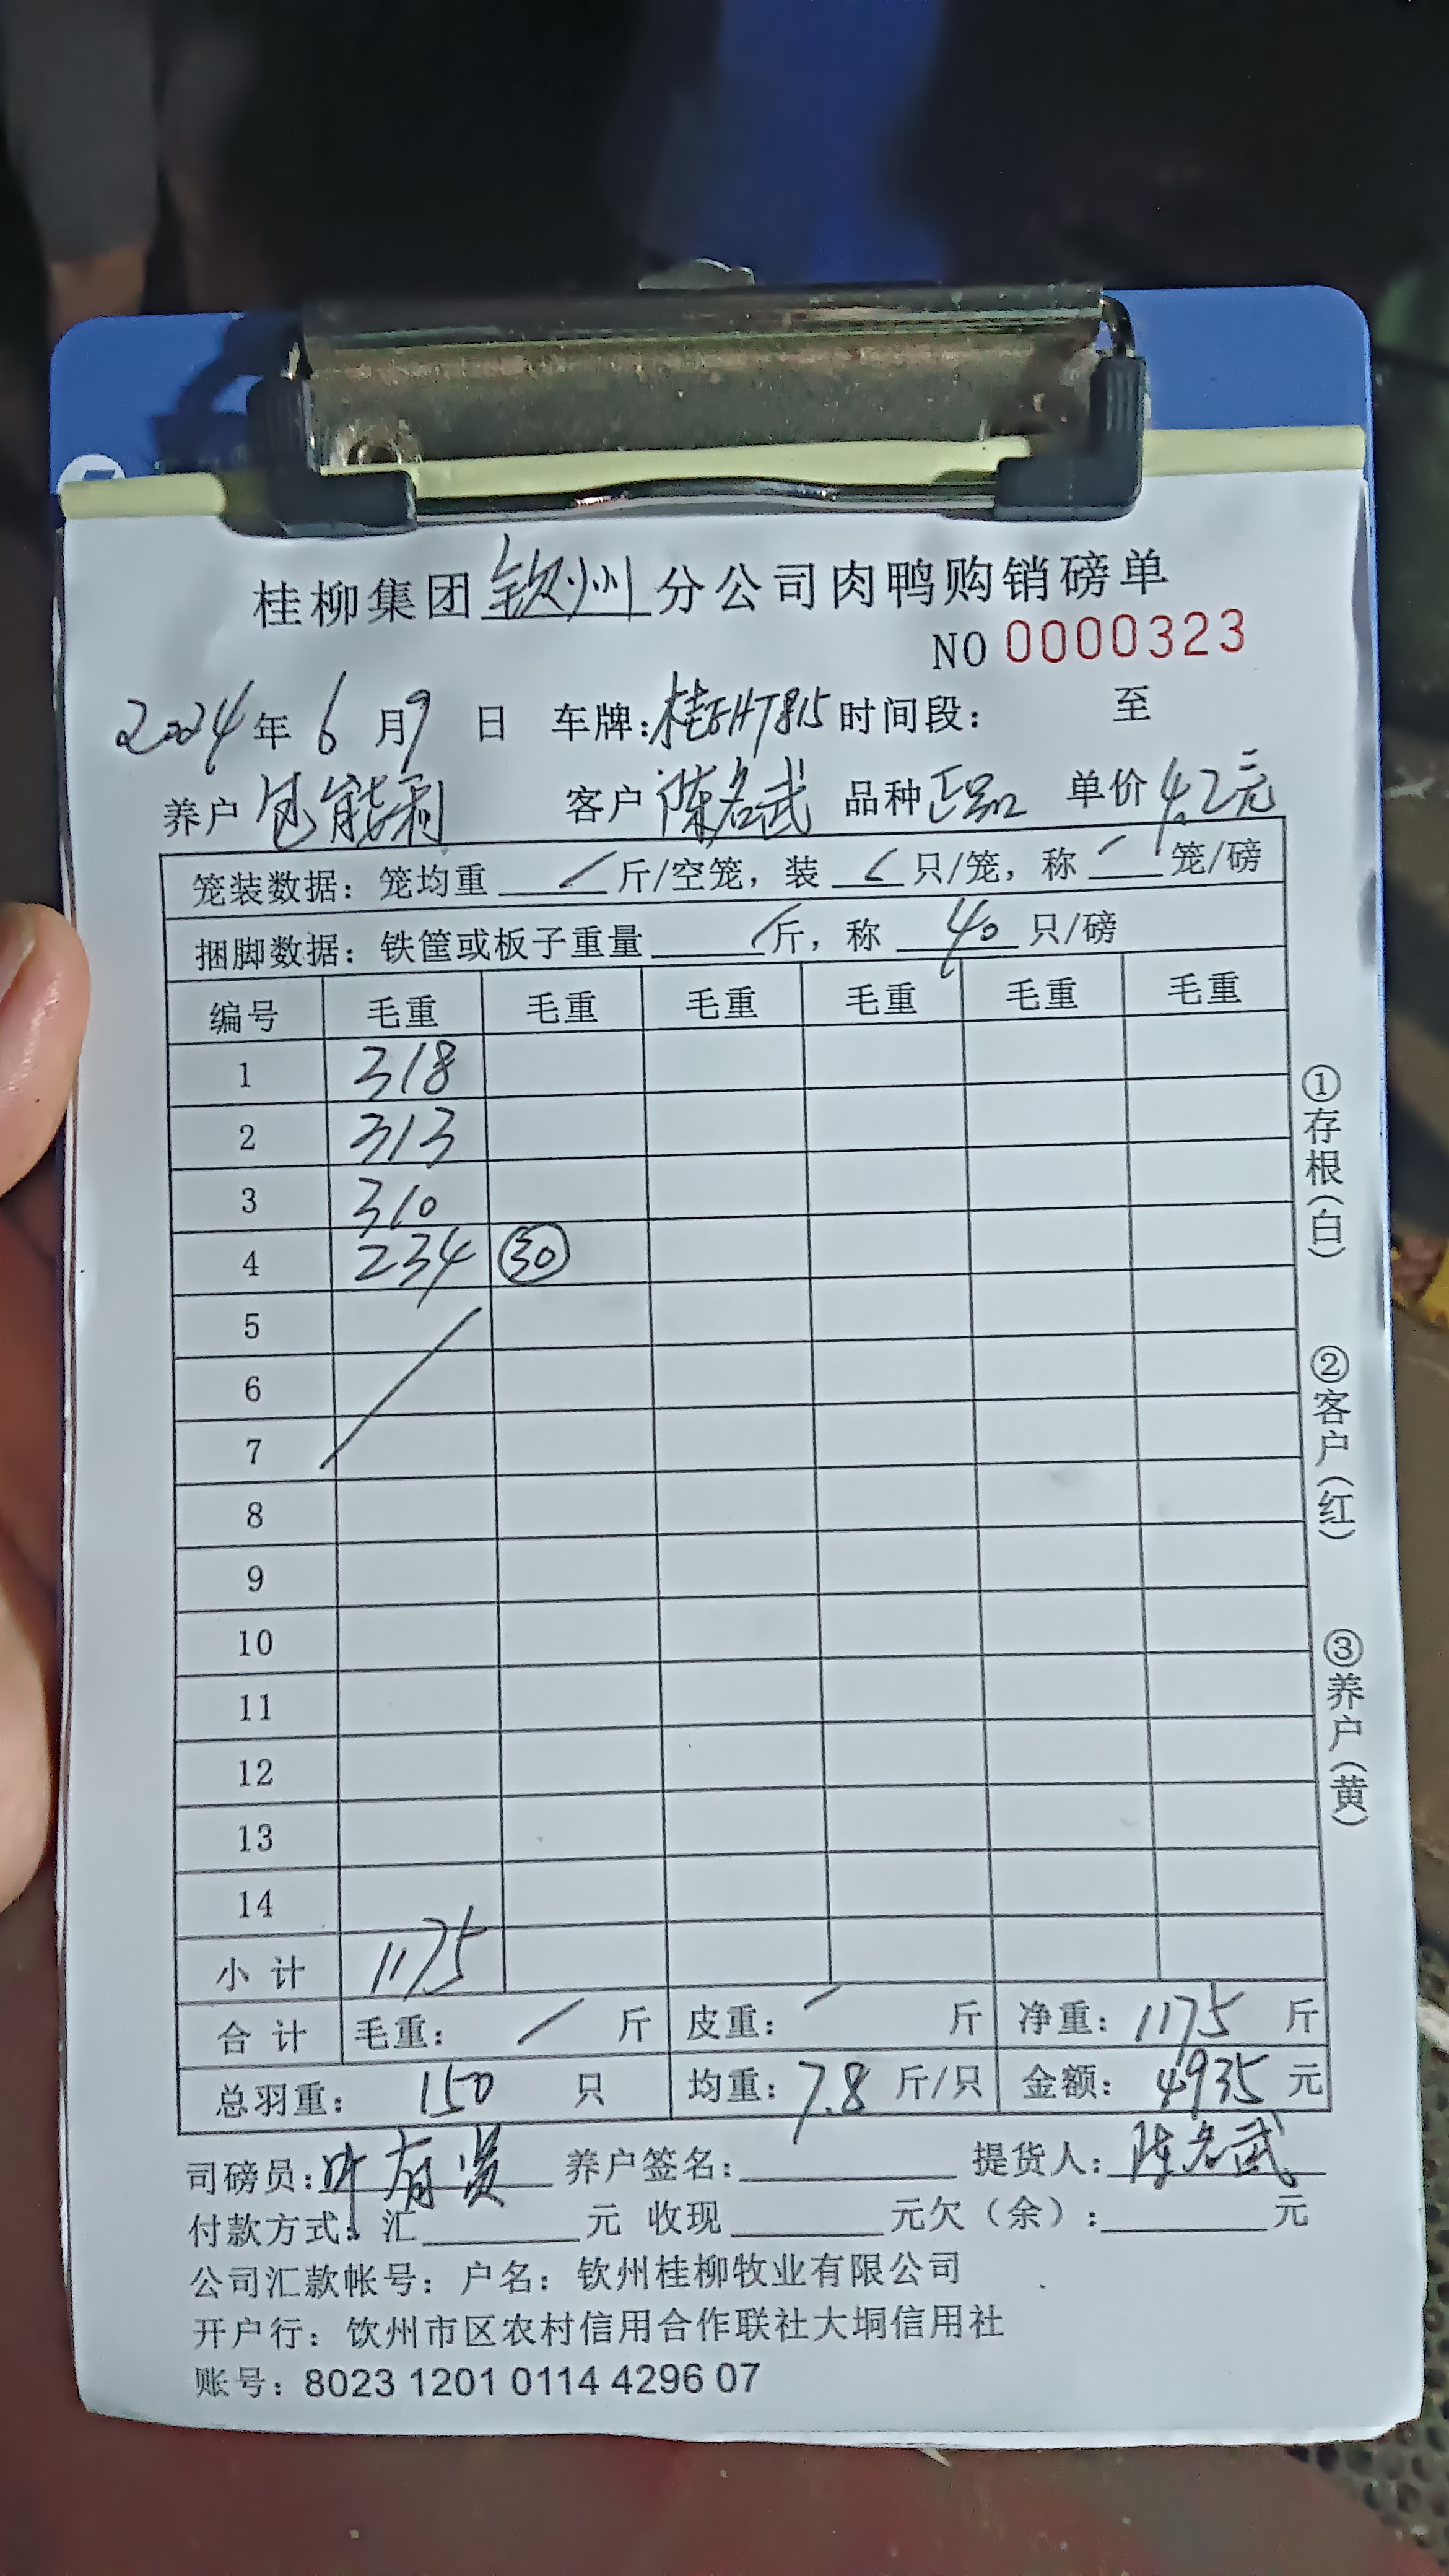 桂柳集团钦州分公司肉鸭购销磅单
NO 0000323
2024年6月9日 车牌:桂EHT815 时间段: 至
养户 包能利 客户 陈名武 品种 正品 单价 4.2元
笼装数据: 笼均重 / 斤/空笼, 装 / 只/笼, 称 / 笼/磅
捆脚数据: 铁筐或板子重量 / 斤, 称 40 只/磅
编号 毛重 毛重 毛重 毛重 毛重 毛重
1 318
2 313
3 310
4 234 ㉚
5
6
7
8
9
10
11
12
13
14
小计 1175
合计 毛重: / 斤 皮重: / 斤 净重: 1175 斤
总羽重: 150 只 均重: 7.8 斤/只 金额: 4935 元
司磅员: 叶有贤 养户签名: 提货人: 陈名武
付款方式: 汇 元 收现 元欠(余): 元
公司汇款帐号: 户名: 钦州桂柳牧业有限公司
开户行: 饮州市区农村信用合作联社大垌信用社
账号: 8023 1201 0114 4296 07
①存根(白)
②客户(红)
③养户(黄)